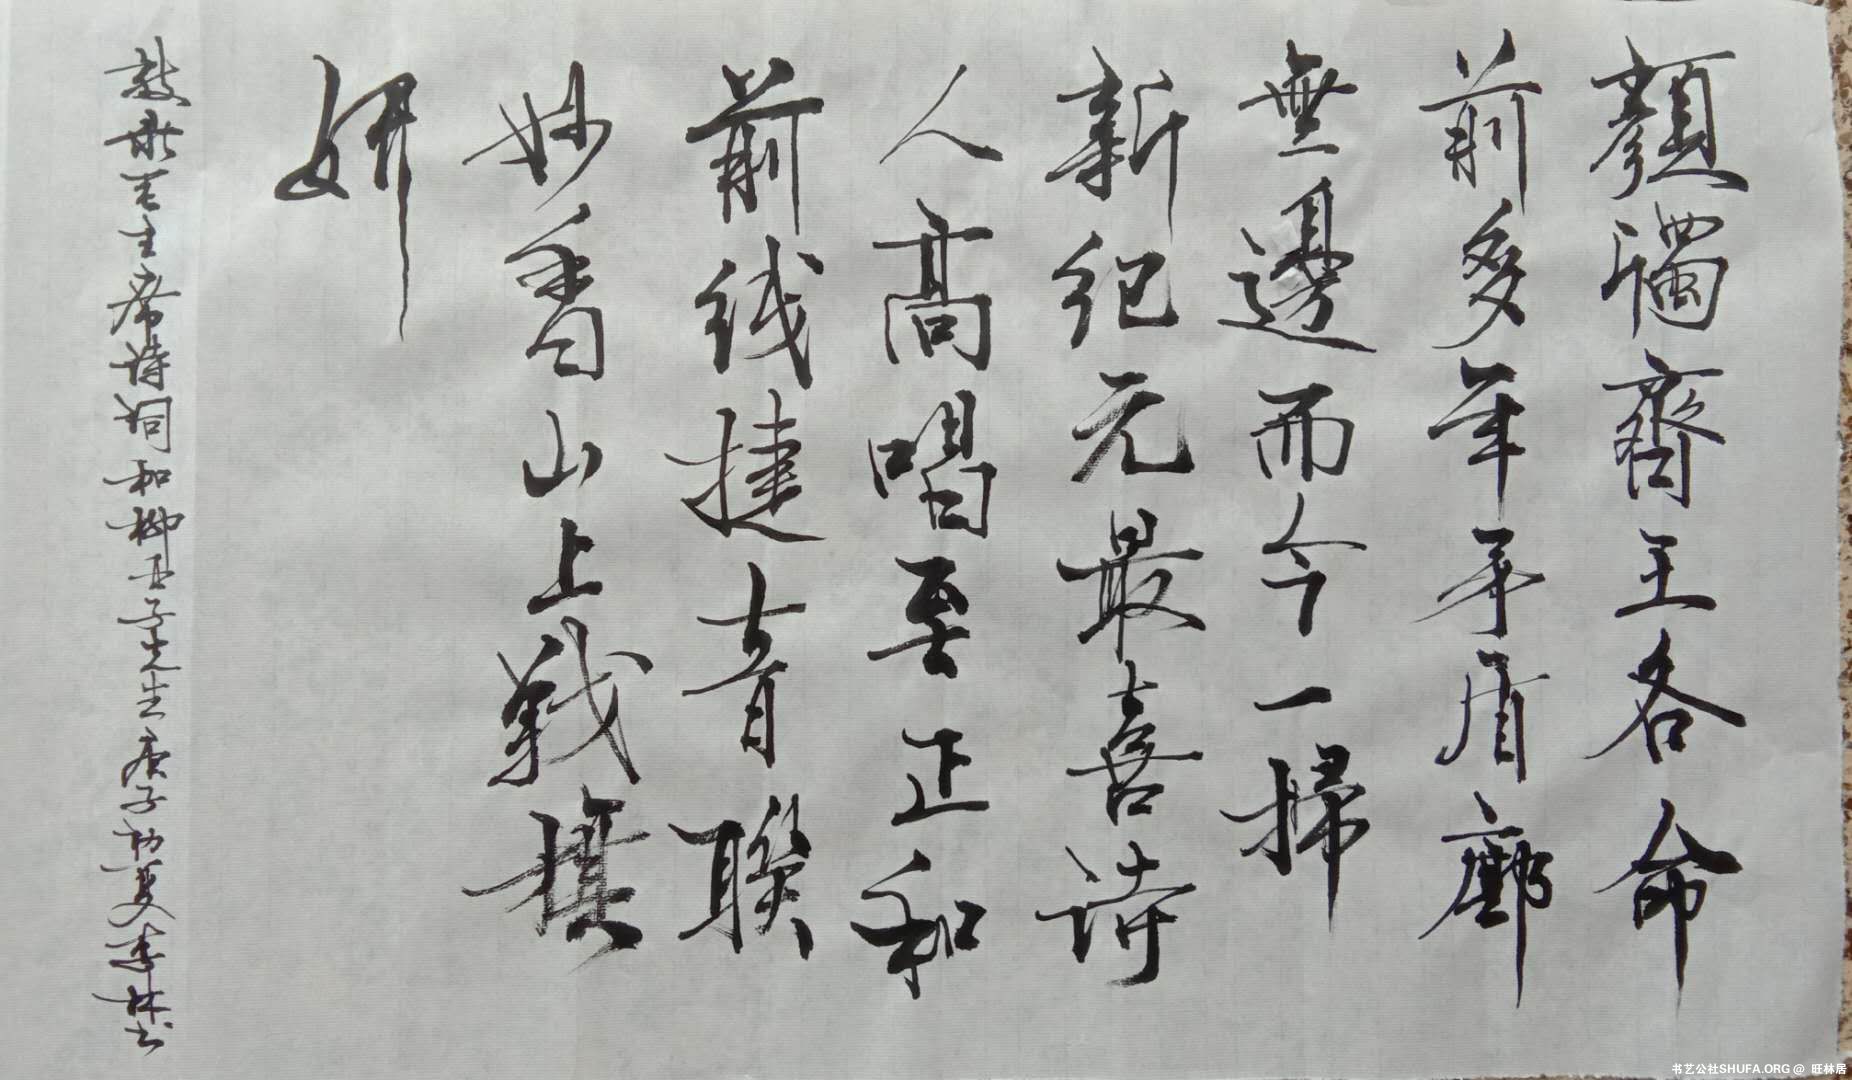 顏斶齊王各命
前多年矛盾廊
無邊而今一掃
新纪元最喜詩
人高唱至正和
前线捷音聯
妙香山上戰旗
妍
敬录毛主席诗词和柳亚子先生庚子初夏李林书
书艺公社SHUFA.ORG @ 旺林居